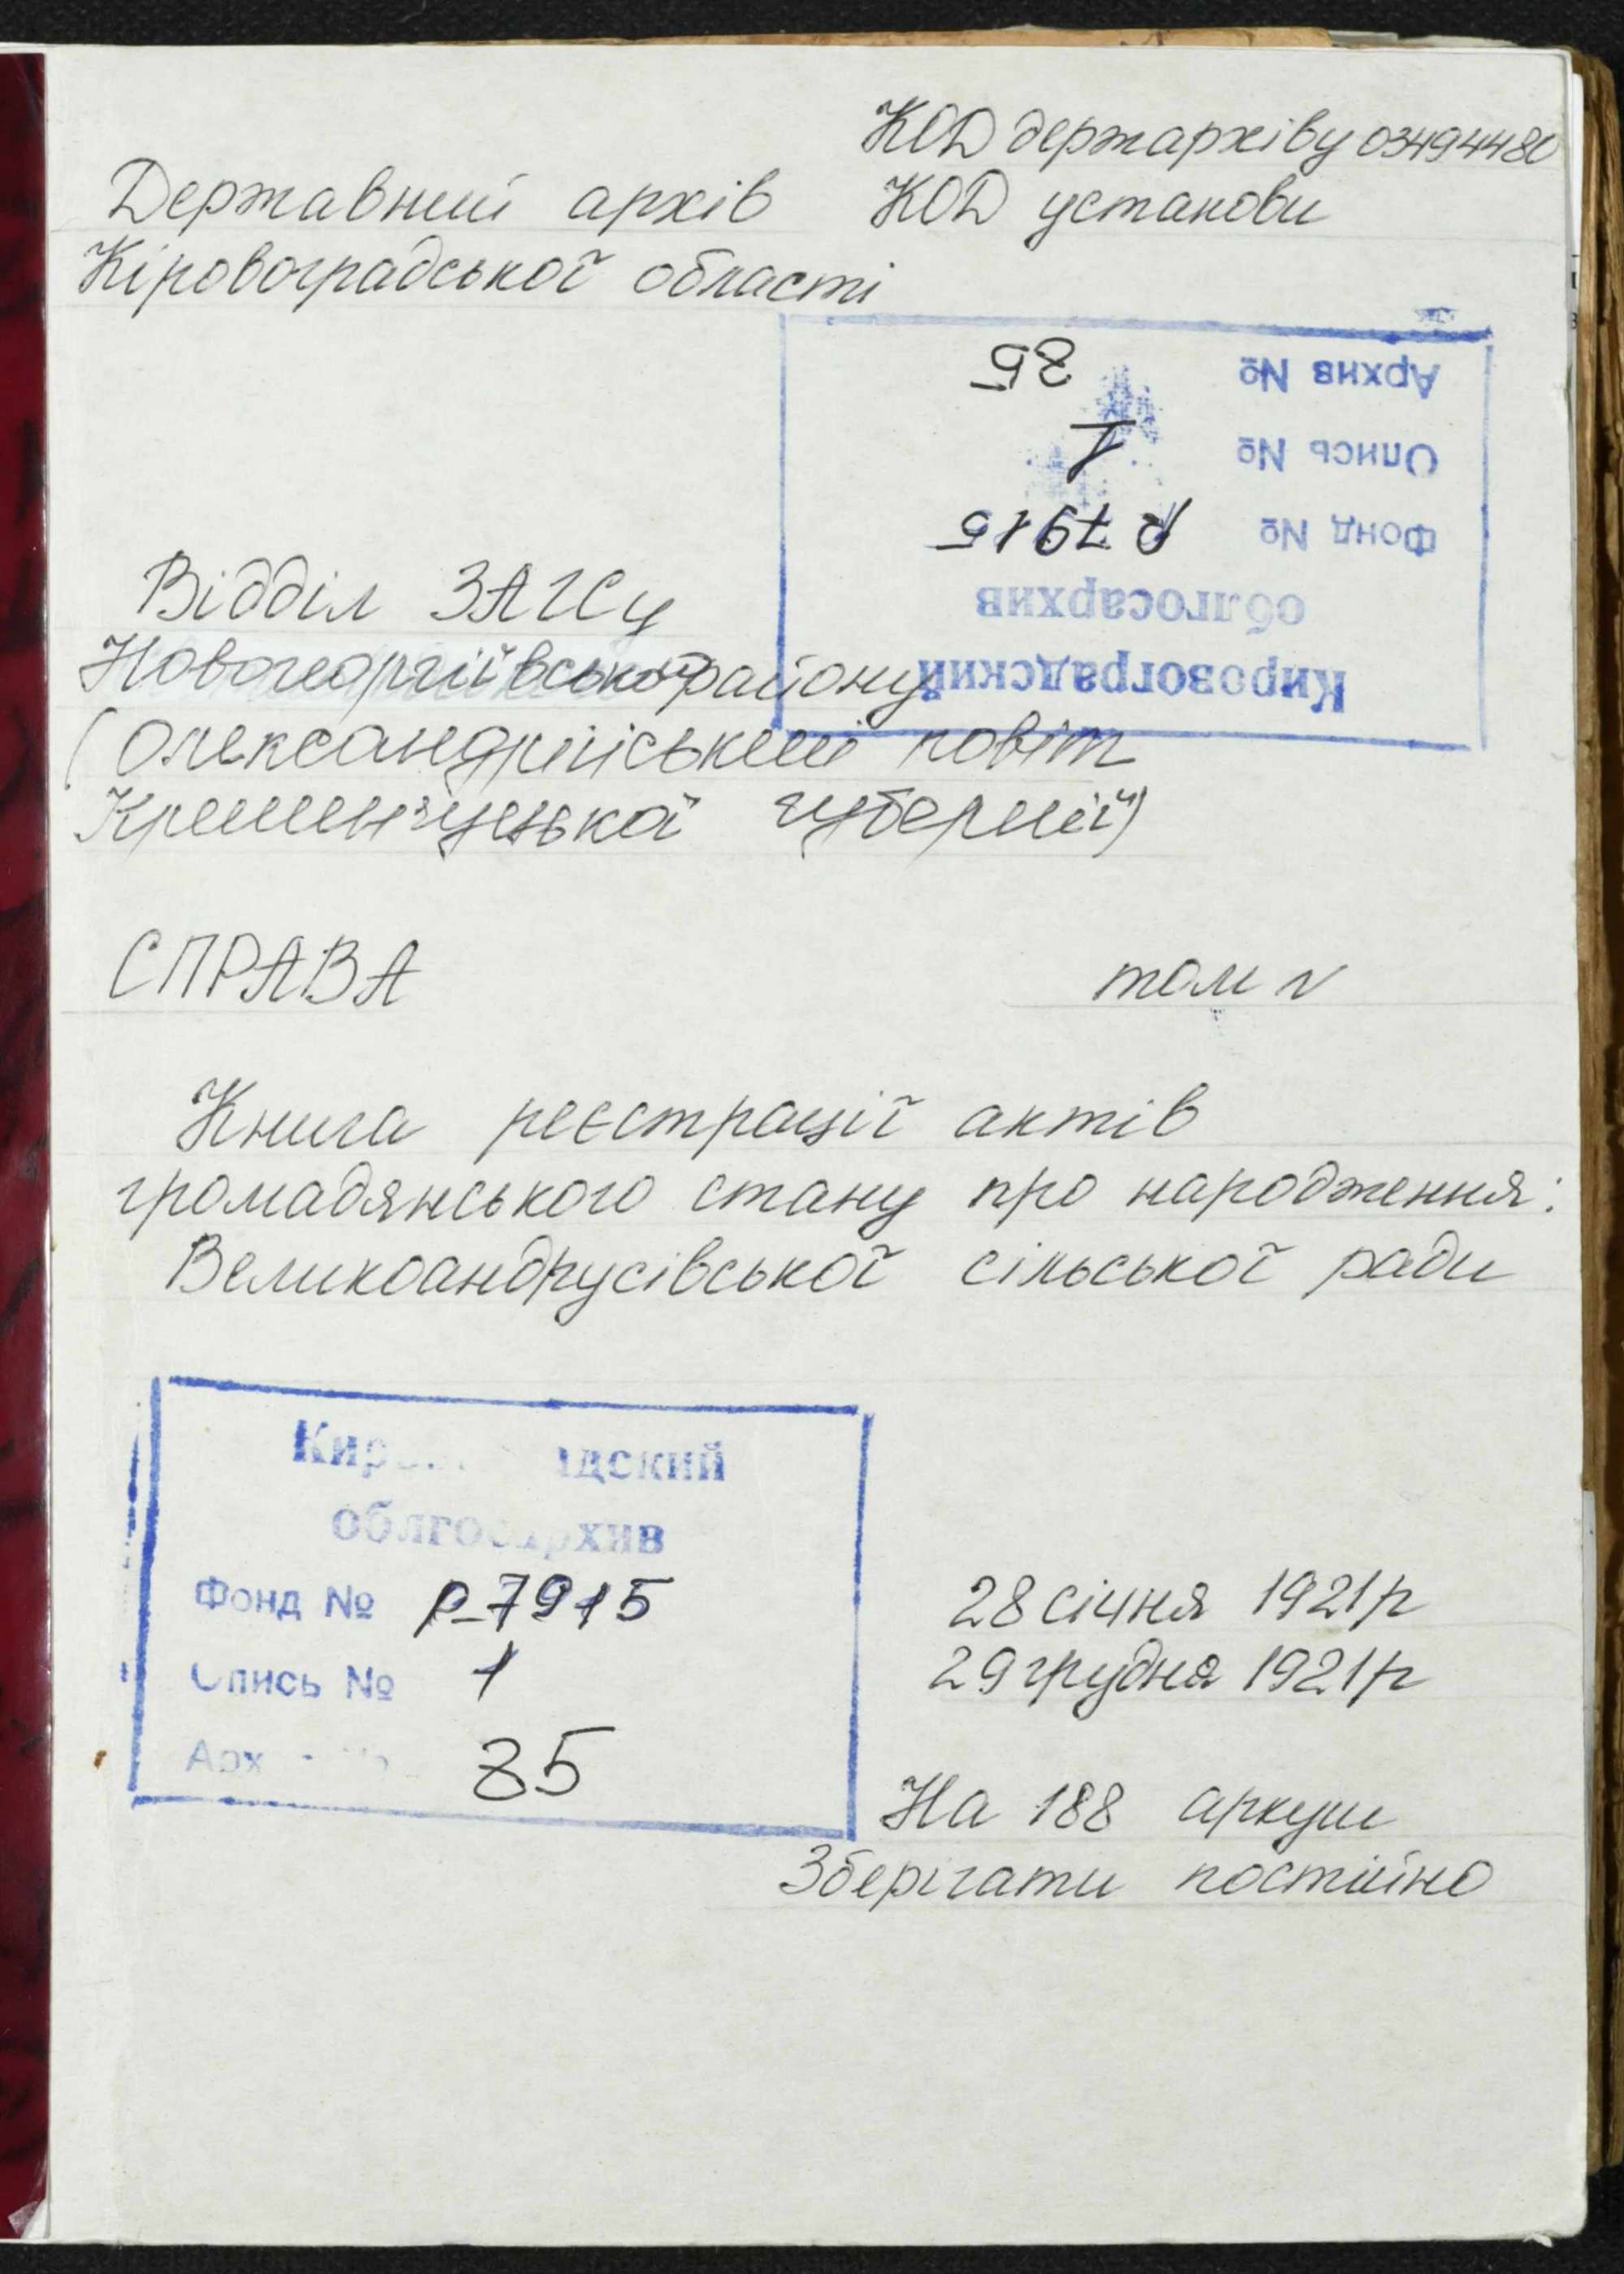 КОД держархіву 03494480
Державний архів КОД установи
Кіровоградської області
Кировоградский
облгосархив
Фонд № Р 7915
Опись № 1
Архив № 85
Відділ ЗАГСу
Новогеоргіївського району
(Олександрійський повіт
Кременчуцької губернії)
СПРАВА том №
Книга реєстрації актів
громадянського стану про народження:
Великоандрусівської сільської ради
Кир адский
облгосархив
Фонд № Р-7915
Опись № 1
Арх 85
28 січня 1921р
29 грудня 1921р
На 188 аркуш
Зберігати постійно